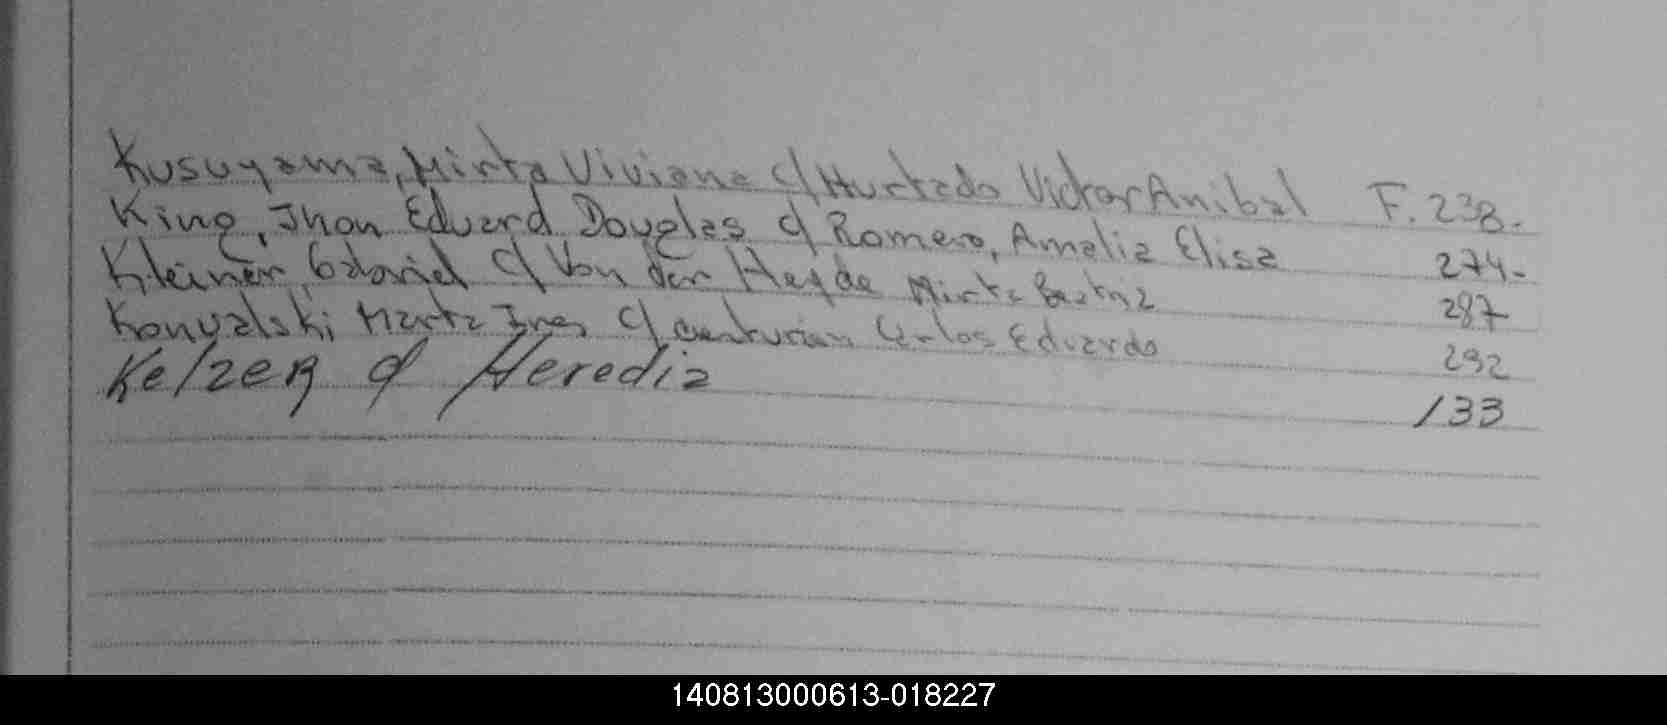 Kusuyama, Mirta Viviana c/ Hurtado Victor Anibal F. 238.
King, Jhon Eduard Douglas c/ Romero, Amalia Elisa 274-
Kleiner, Gabriel c/ Von der Heyde Mirta Beatriz 287
Konvalski Marta Ines c/ Centurian Carlos Eduardo 292
Kelzer c/ Heredia 133
140813000613-018227